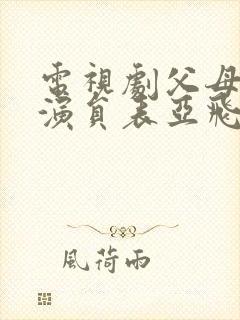 電視劇父母
演員表亞飛
風荷雨